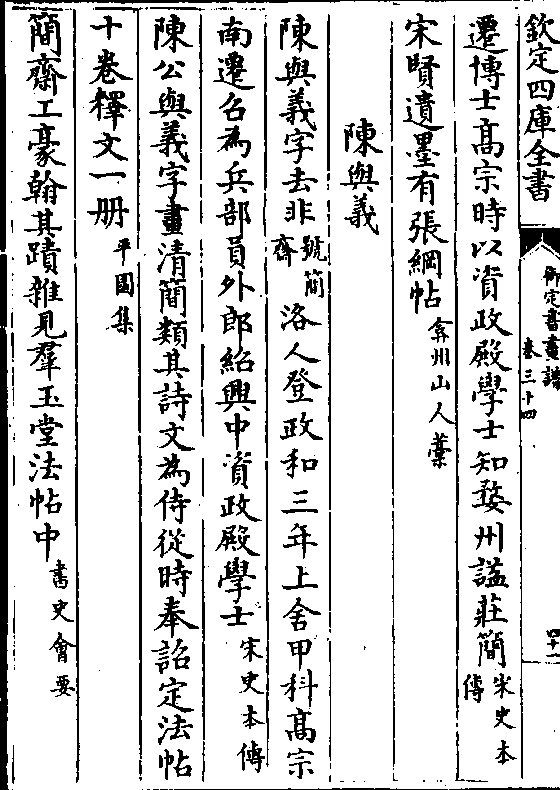 欽定四庫全書
御定書畫譜
卷三十四
四十一
遷博士髙宗時以資政殿學士知婺州諡莊簡宋史本傳
宋賢遺墨有張綱帖弇州山人藁
陳與義
陳與義字去非號簡齋洛人登政和三年上舍甲科髙宗
南遷召為兵部員外郎紹興中資政殿學士宋史本傳
陳公與義字畫清簡類其詩文為侍從時奉詔定法帖
十卷釋文一册平園集
簡齋工豪翰其蹟雜見羣玉堂法帖中書史會要